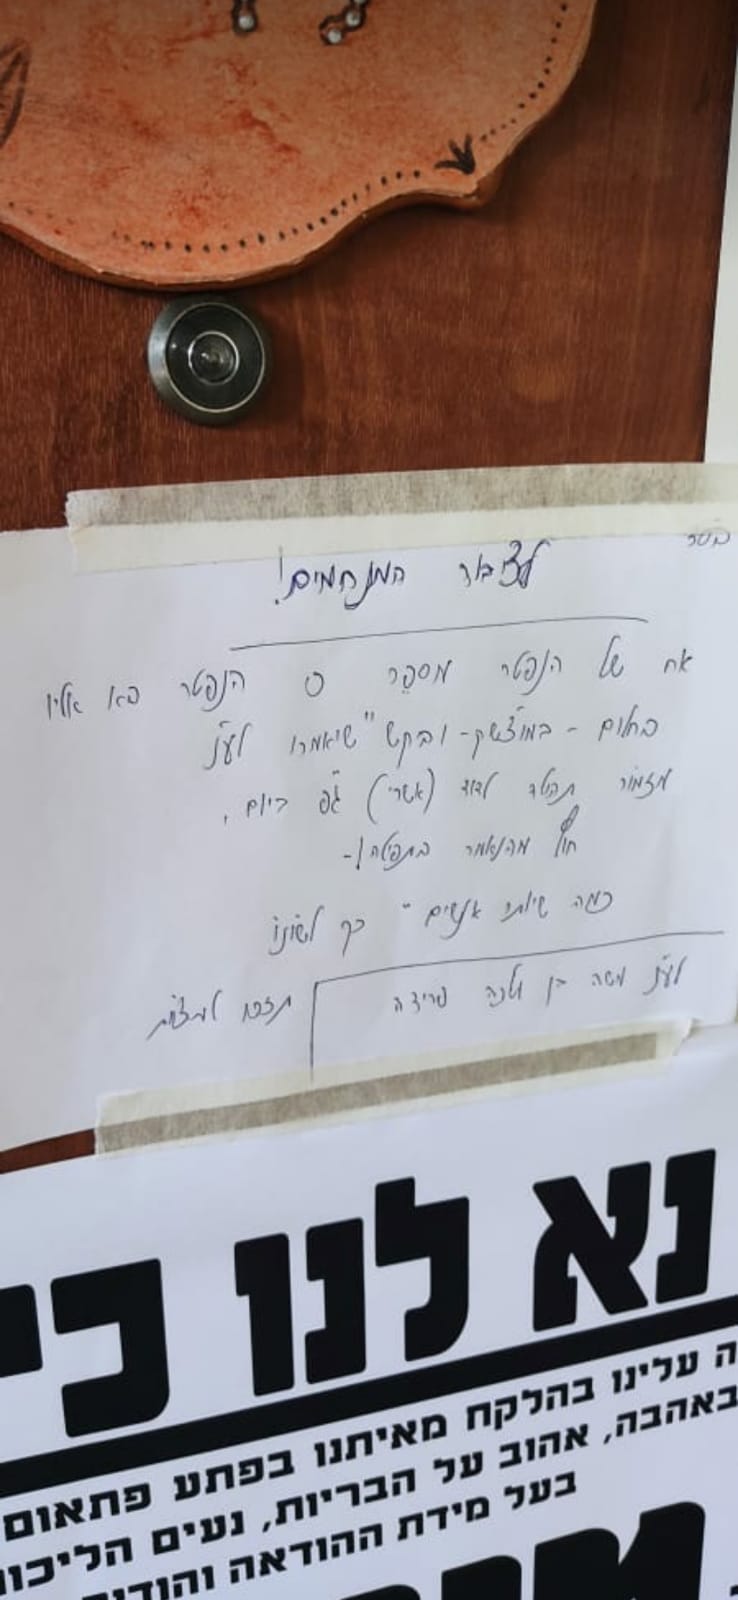 בס"ד
לציבור המנחמים!
אח של הנפטר מספר כי הנפטר בא אליו
בחלום - במוצ"שק - ובקש "שיאמרו לע"נ
מזמור תהילה לדוד (אשרי) ג"פ ביום,
חוץ מהנאמר בתפילה! -
כמה שיותר אנשים" כך לשונו
לע"נ משה בן פרידה
תזכו למצוות
נא לנו כי
ה עלינו בהלקח מאיתנו בפתע פתאום
באהבה, אהוב על הבריות, נעים הליכו
בעל מידת ההודאה והודיה